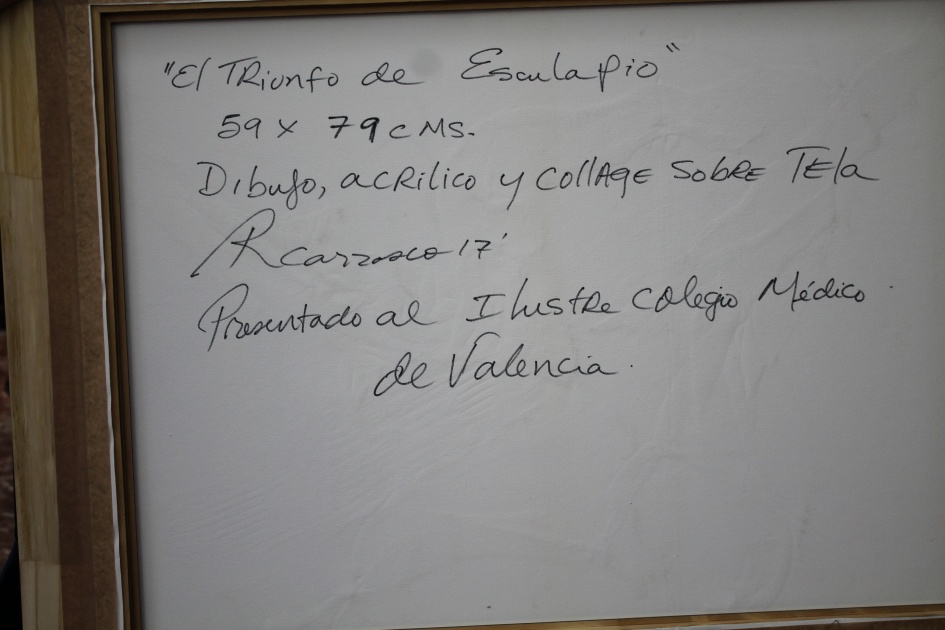 "El TRiunfo de Esculapio"
59 x 79 cMS.
Dibujo, acRilico y collAgE SobRE TEla
R Carrasco 17'
Presentado al IlustRe colegio Médico
de Valencia.